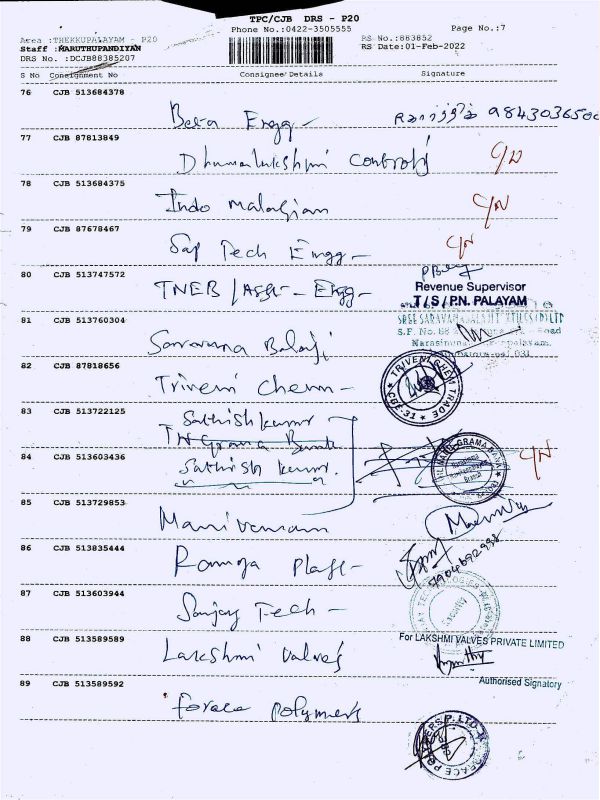 TPC/CJB DRS - P20
Phone No.:0422-3505555
Page No.:7
Area :THEKKUPALAYAM - P20
RS No.:883852
Staff :MARUTHUPANDIYAN
RS Date:01-Feb-2022
DRS No. :DCJB88385207
S No Consignment No Consignee Details Signature
76 CJB 513684378
Beta Engg - 9843036500
77 CJB 87813849
Dhumalukshmi Controls C/N
78 CJB 513684375
Indo Malaysian C/N
79 CJB 87678467
Sap Tech Eingg - C/N
80 CJB 513747572
TNEB / Asst - Engg -
Revenue Supervisor
T/S/P.N. PALAYAM
81 CJB 513760304
Saravana Balaji
S.F. No.
82 CJB 87818656
Triveni Chem -
TRIVENI CHEM TRADE
83 CJB 513722125
Sathishkumar
TN Grama Bank
GRAMA BANK
84 CJB 513603436
Sathish kumar. C/N
85 CJB 513729853
Manivannan
86 CJB 513835444
Ramya Plast -
7904692998
87 CJB 513603944
Sanjay Tech -
Security
88 CJB 513589589
Lakshmi Valves
For LAKSHMI VALVES PRIVATE LIMITED
Authorised Signatory
89 CJB 513589592
forace polymers